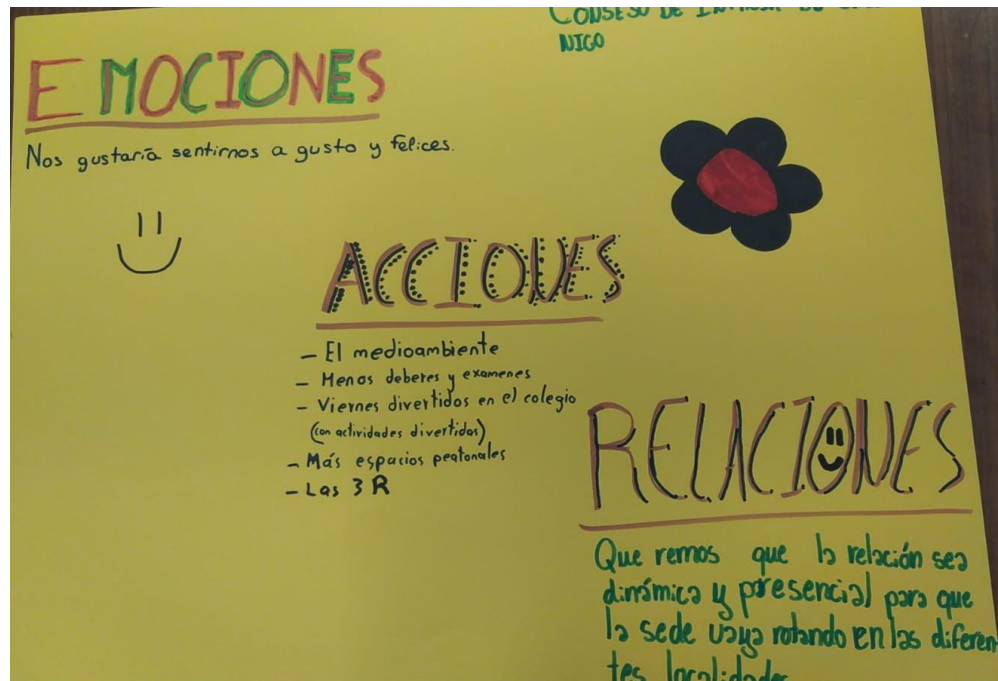 CONSEJO DE
NIGO
EMOCIONES
Nos gustaría sentirnos a gusto y felices.
ACCIONES
- El medioambiente
- Menos deberes y examenes
- Viernes divertidos en el colegio
(con actividades divertidas)
- Más espacios peatonales
- Las 3 R
RELACIONES
Que remos que la relación sea
dinámica y presencial para que
la sede vaya rotando en las diferen
tes localidades